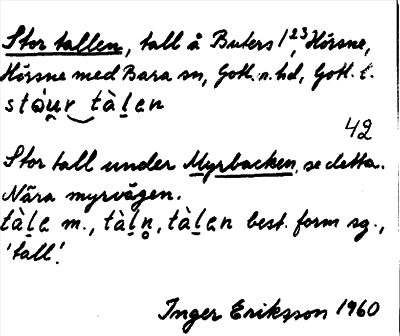 Stor tallen, tall å Buters 1²³, Hörsne,
Hörsne med Bara sn, Gotl. n. hd, Gotl. l.
stɑ̀u̯r‿tàḷen
42
Stor tall under Myrbacken, se detta.
Nära myrvägen.
tàḷe m., tàḷn̥, tàḷen best. form sg.,
'tall'.
Inger Eriksson 1960